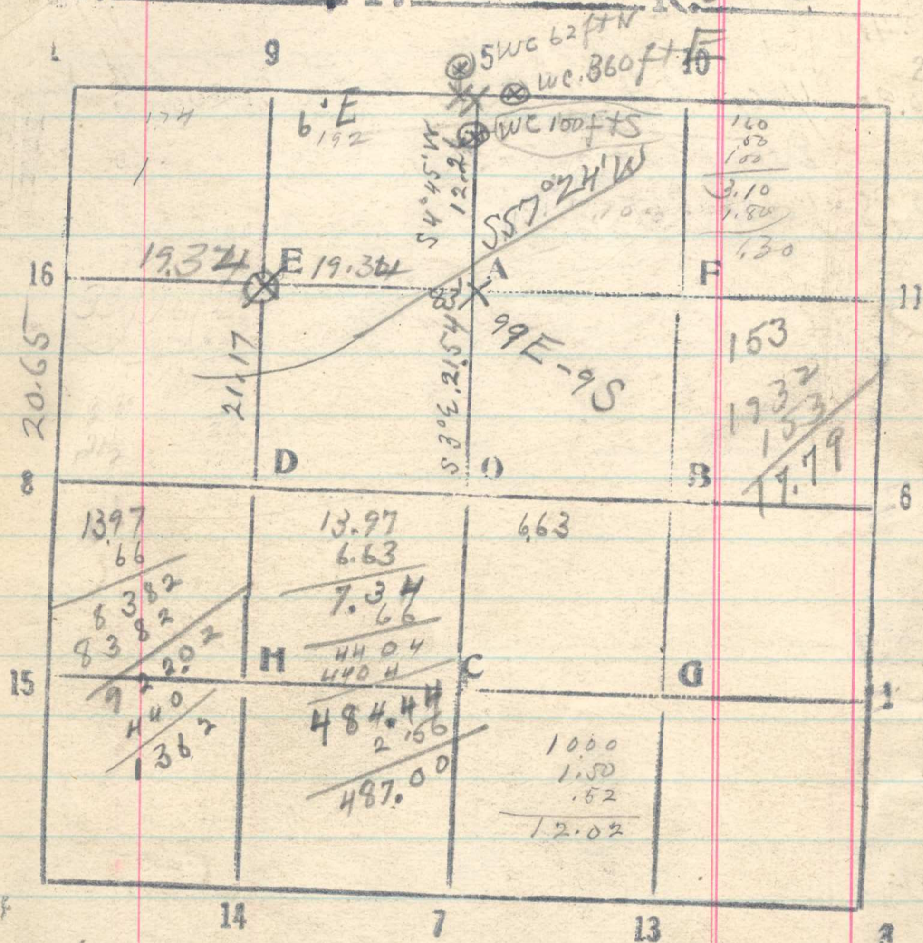 9
5 WC 62 ft N
10
WC. 360 ft E
6° E
192
WC 100 ft S
S 4° 45' W
12.21
S 57° 24' W
160
.50
1.00
3.10
1.80
1.30
16
19.34
E
19.34
A
F
11
83'
20.65
21.17
S 3° E. 21.54
99 E - 9 S
153
1932
153
17.79
8
D
O
B
6
1397
66
8382
8382
92202
440
1362
13.97
6.63
7.34
66
4404
4404
484.44
2.56
487.00
6.63
15
H
C
G
1000
1.50
.52
12.02
14
7
13